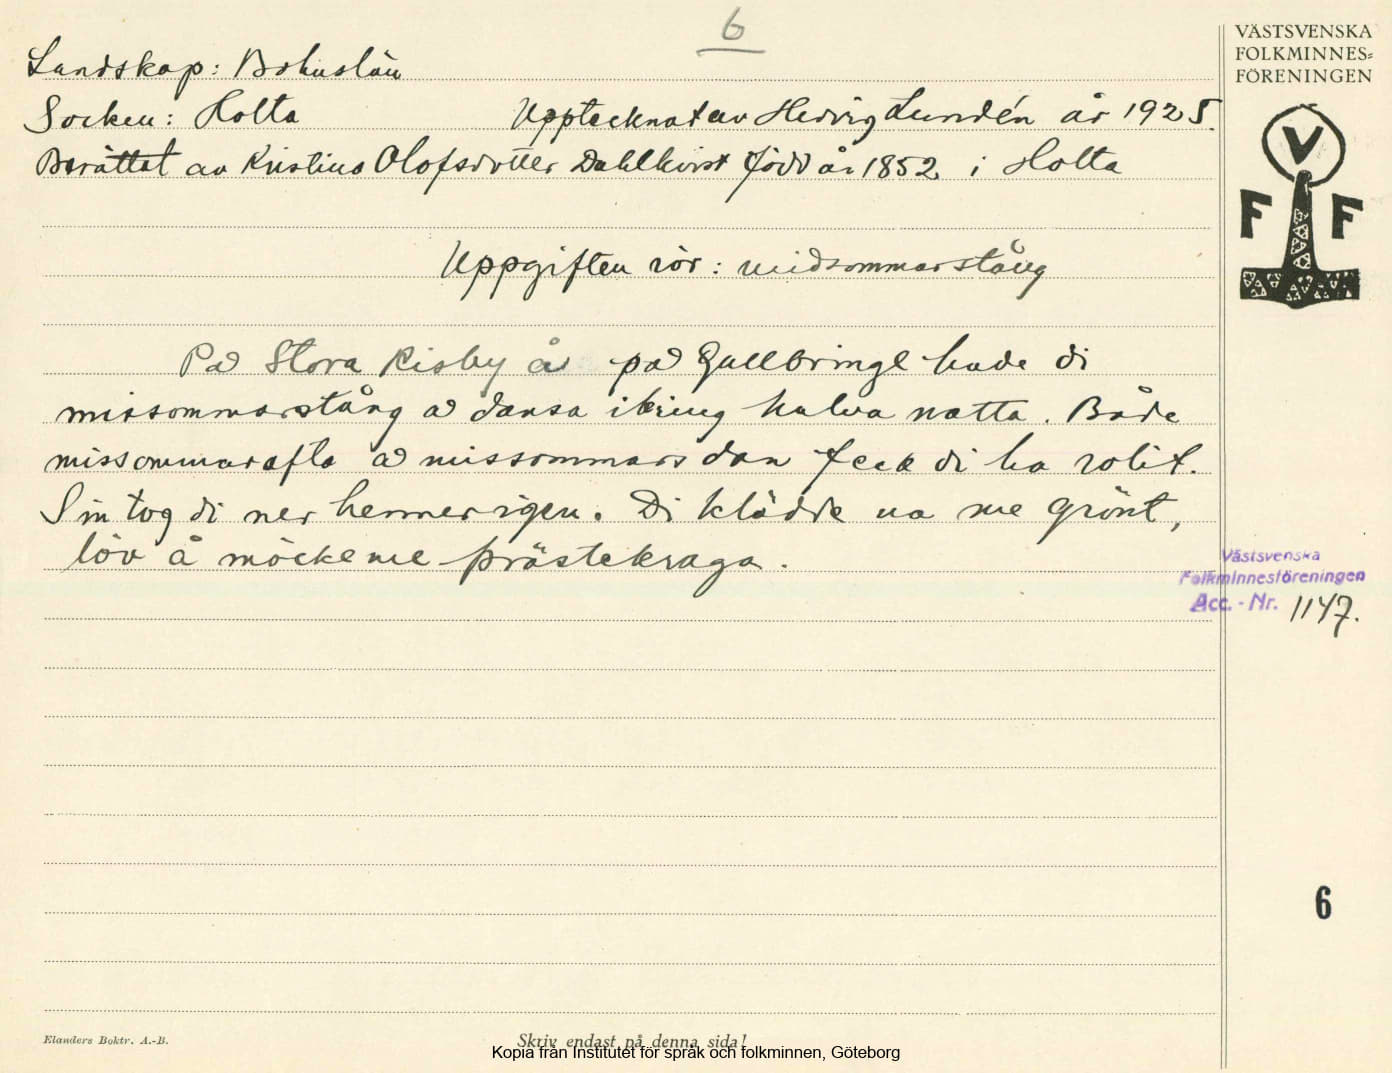 6
VÄSTSVENSKA
FOLKMINNES=
FÖRENINGEN
V
F F
Landskap: Bohuslän
Socken: Holta Upptecknat av Hedvig Lundén år 1925.
Berättat av Kristina Olofsdotter Dahlkvist född år 1852 i Holta
Uppgiften rör: midsommarstång
På Stora Risby å på Gullbringe hade di
missommarstång å dansa ikring halva natta. Både
missommarafta å missommarsdan feck di ha rolit.
Sin tog di ner henner igen. Di klädde na me grönt,
löv å möcke me prästekraga.
Västsvenska
Folkminnesföreningen
Acc.-Nr. 1147.
6
Elanders Boktr. A.-B.
Skriv endast på denna sida!
Kopia från Institutet för språk och folkminnen, Göteborg